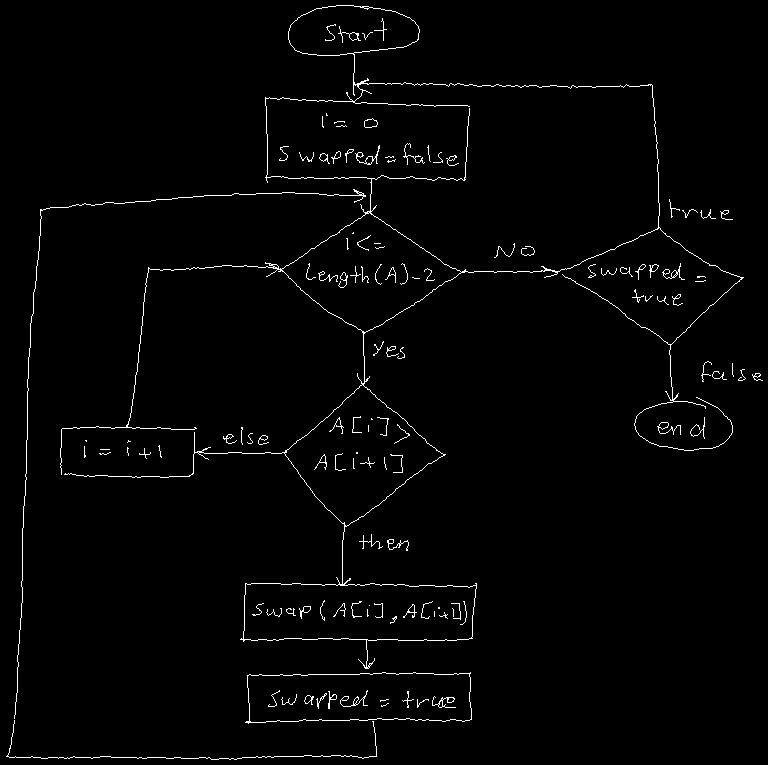 Start
i = 0
Swapped = false
i <=
Length(A) - 2
NO
true
Swapped =
true
yes
false
end
A[i] >
A[i+1]
else
i = i+1
then
Swap(A[i], A[i+1])
Swapped = true